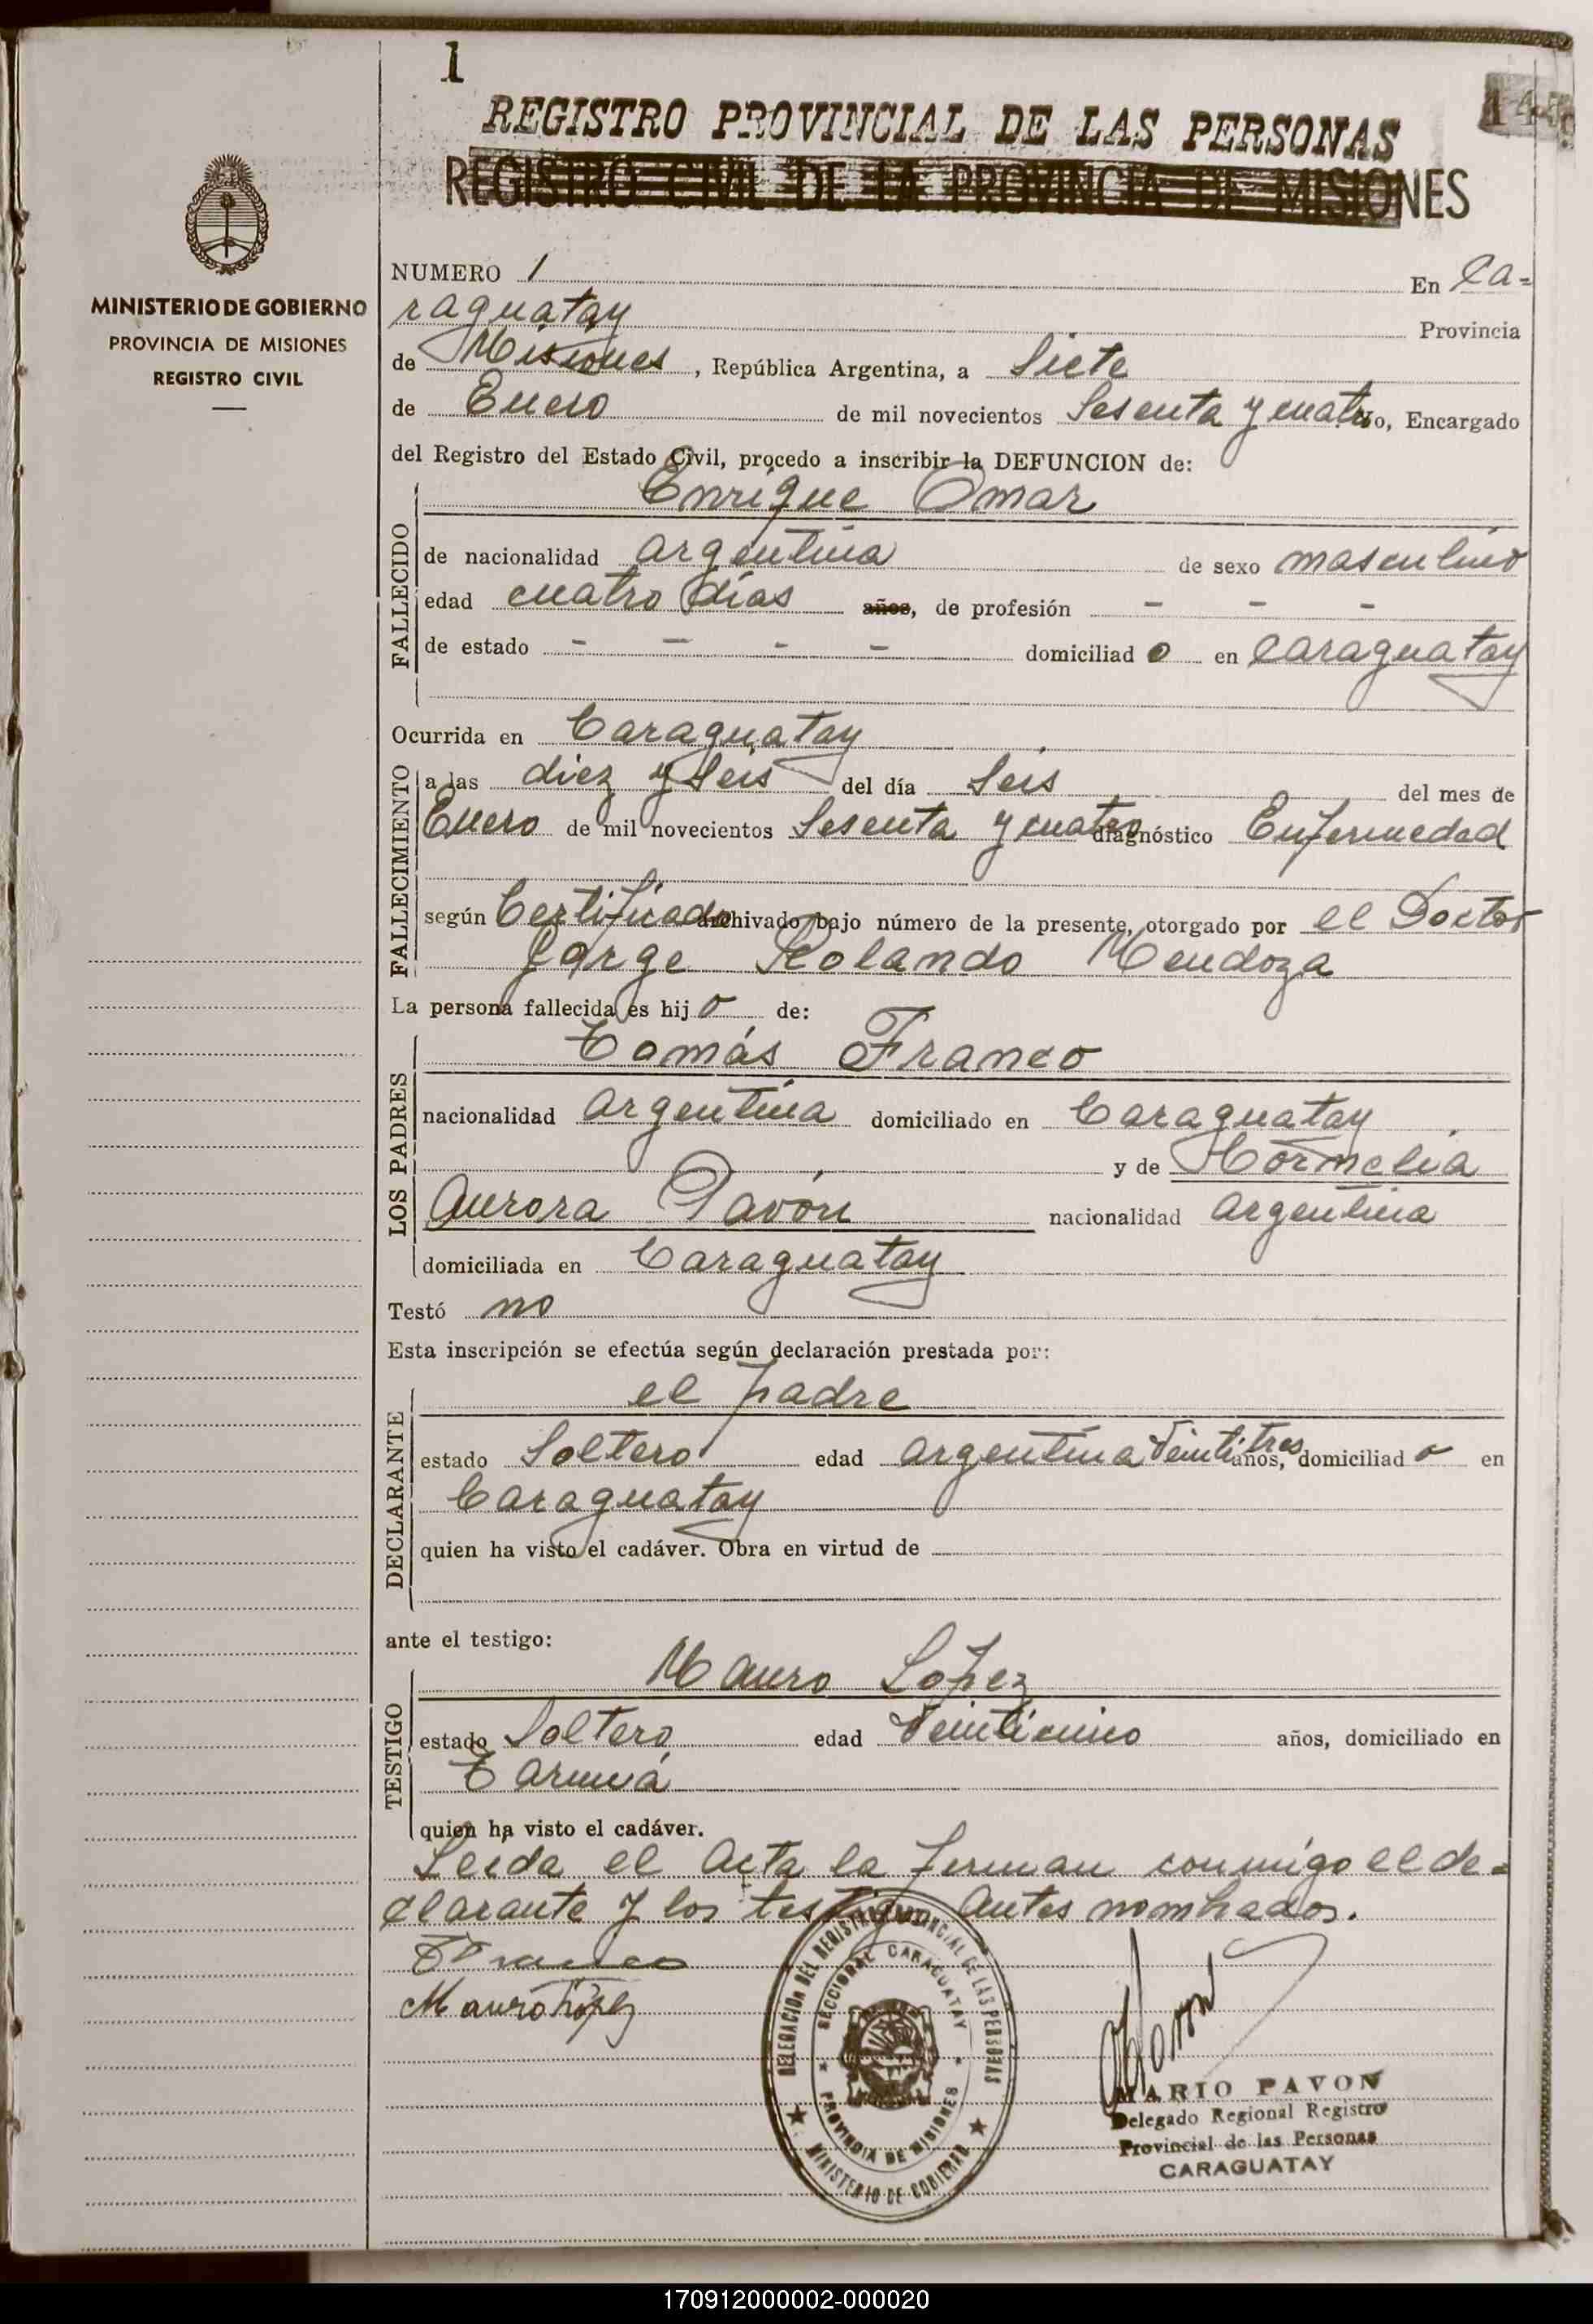 1
REGISTRO PROVINCIAL DE LAS PERSONAS
REGISTRO CIVIL DE LA PROVINCIA DE MISIONES
MINISTERIO DE GOBIERNO
PROVINCIA DE MISIONES
REGISTRO CIVIL
NUMERO 1 En Ca-
raguatay Provincia
de Misiones, República Argentina, a Siete
de Enero de mil novecientos Sesenta y cuatro, Encargado
del Registro del Estado Civil, procedo a inscribir la DEFUNCION de:
Enrique Omar
FALLECIDO
de nacionalidad argentina de sexo masculino
edad cuatro días años, de profesión - - -
de estado - - - - domiciliado en Caraguatay
Ocurrida en Caraguatay
FALLECIMIENTO
a las diez y Seis del día Seis del mes de
Enero de mil novecientos Sesenta y cuatro diagnóstico Enfermedad
según Certificado archivado bajo número de la presente, otorgado por el Doctor
Jorge Rolando Mendoza
La persona fallecida es hijo de:
LOS PADRES
Tomás Franco
nacionalidad argentina domiciliado en Caraguatay
y de Cormelia
Aurora Pavón nacionalidad argentina
domiciliada en Caraguatay
Testó no
Esta inscripción se efectúa según declaración prestada por:
DECLARANTE
el padre
estado Soltero edad argentina Veintitres años, domiciliado en
Caraguatay
quien ha visto el cadáver. Obra en virtud de
ante el testigo:
TESTIGO
Mauro López
estado Soltero edad Veinticinco años, domiciliado en
Tarumá
quien ha visto el cadáver.
Leída el Acta la firman conmigo el de-
clarante y los testigos Antes nombrados.
TFranco
Mauro López
DELEGACION DEL REGISTRO PROVINCIAL DE LAS PERSONAS
SECCIONAL CARAGUATAY
PROVINCIA DE MISIONES
MINISTERIO DE GOBIERNO
MARIO PAVON
Delegado Regional Registro
Provincial de las Personas
CARAGUATAY
170912000002-000020